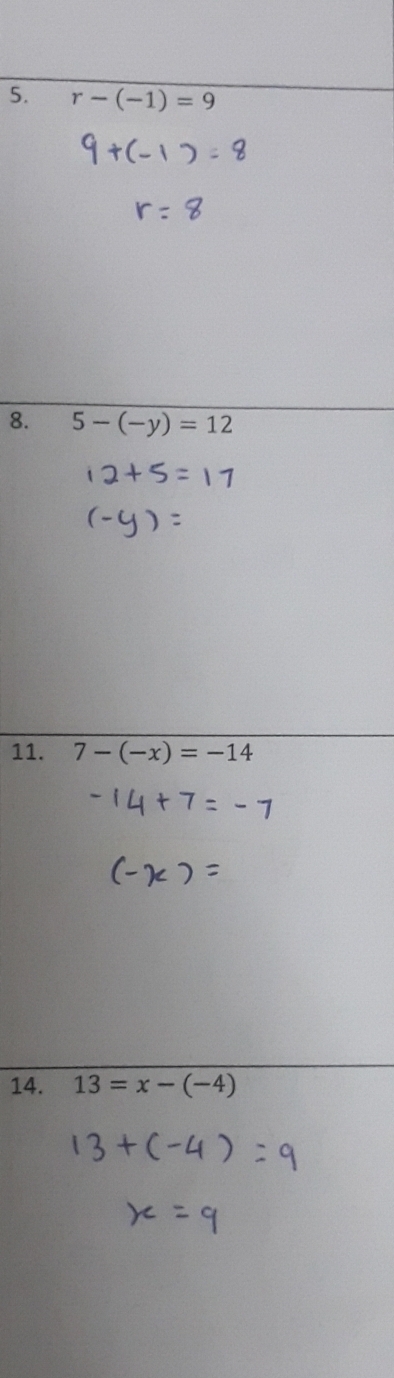 5. r − (−1) = 9
9 + (-1) = 8
r = 8
8. 5 − (−y) = 12
12 + 5 = 17
(-y) =
11. 7 − (−x) = −14
-14 + 7 = -7
(-x) =
14. 13 = x − (−4)
13 + (-4) = 9
x = 9